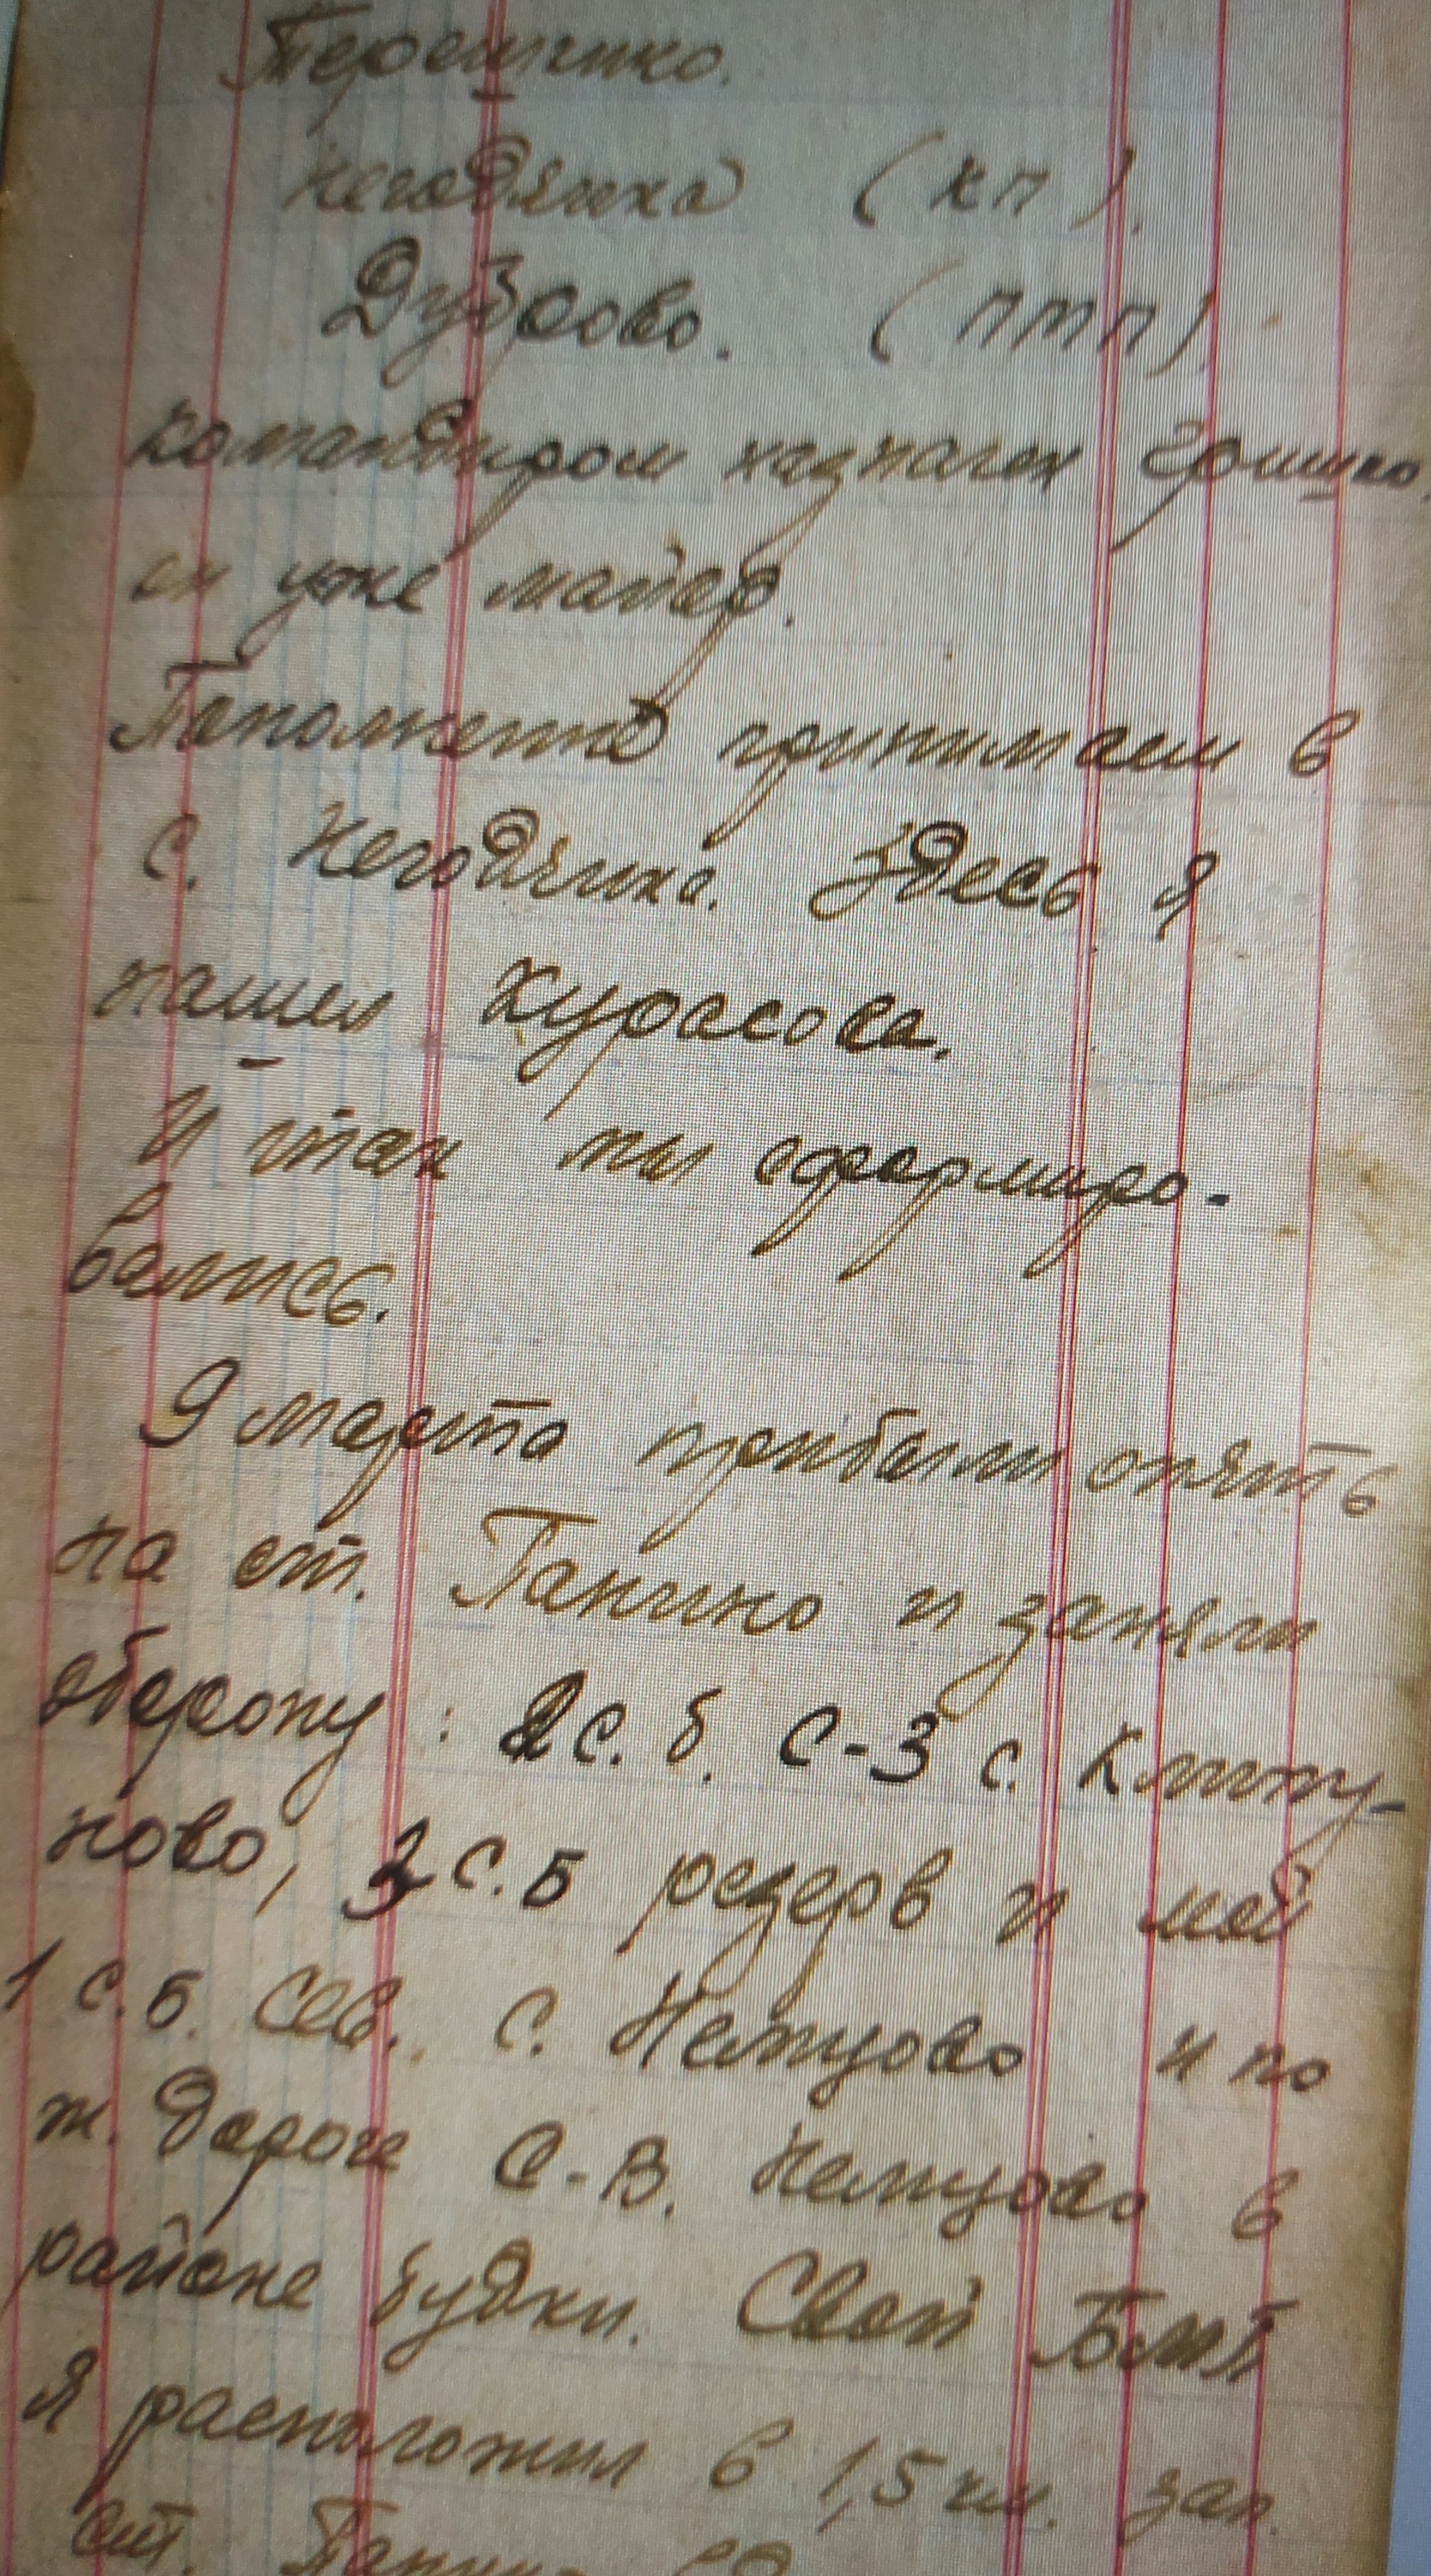 Терешино.
Негодяиха (КП).
Дубсово. (ПТП).
командиром назначен Гришко.
он уже майор.
Пополнение принимаем в
с. Негодяиха. Здесь я
нашел Курасова.
И так мы сформиро-
вались.
9 марта прибыли опять
на ст. Панино и заняли
оборону: 2 с.б. С-З с. Клту-
ново, 3 с.б резерв и мой
1 с.б. сев. с. Немцово и по
ж. дороге С-В. Немцово в
районе будки. Свой БМП
я расположил в 1,5 км. зап.
ст. Панино